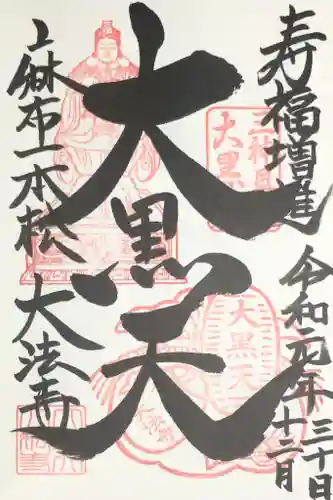 寿福増進
令和元年十二月
三十日
大黒天
大黒天
上麻布一本松
大法寺